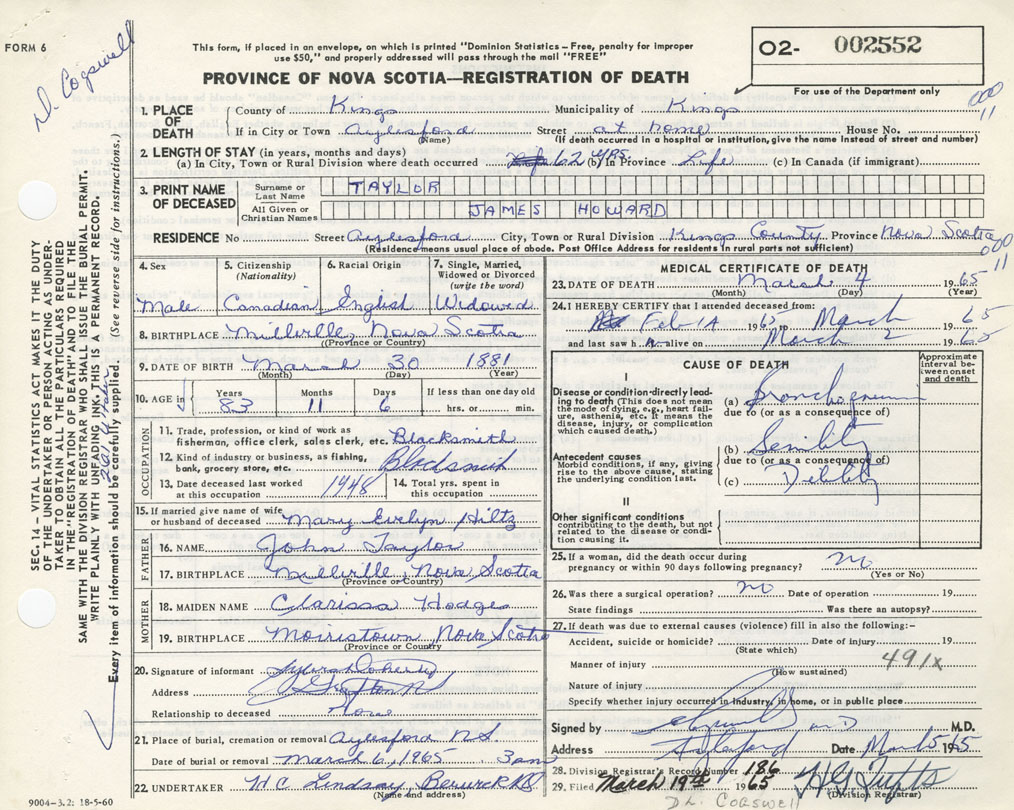 FORM 6
D. Cogswell
This form, if placed in an envelope, on which is printed "Dominion Statistics – Free, penalty for improper
use $50," and properly addressed will pass through the mail "FREE"
O2- 002552
For use of the Department only
PROVINCE OF NOVA SCOTIA—REGISTRATION OF DEATH
000
11
1. PLACE OF DEATH
County of Kings Municipality of Kings
If in City or Town Aylesford Street at home House No.
(Name) (If death occurred in a hospital or institution, give the name instead of street and number)
2. LENGTH OF STAY (in years, months and days)
(a) In City, Town or Rural Division where death occurred 62 yrs (b) In Province Life (c) In Canada (if immigrant)
3. PRINT NAME OF DECEASED
Surname or Last Name TAYLOR
All Given or Christian Names JAMES HOWARD
RESIDENCE No Street Aylesford City, Town or Rural Division Kings County Province Nova Scotia
(Residence means usual place of abode. Post Office Address for residents in rural parts not sufficient)
000
11
4. Sex
Male
5. Citizenship
(Nationality)
Canadian
6. Racial Origin
English
7. Single, Married,
Widowed or Divorced
(write the word)
Widowed
8. BIRTHPLACE Millville, Nova Scotia
(Province or Country)
9. DATE OF BIRTH March 30 1881
(Month) (Day) (Year)
10. AGE in
Years 83
Months 11
Days 6
If less than one day old
hrs. or min.
OCCUPATION
11. Trade, profession, or kind of work as
fisherman, office clerk, sales clerk, etc. Blacksmith
12. Kind of industry or business, as fishing,
bank, grocery store, etc. Blacksmith
13. Date deceased last worked
at this occupation 1948
14. Total yrs. spent in
this occupation
15. If married give name of wife
or husband of deceased Mary Evelyn Hiltz
FATHER
16. NAME John Taylor
17. BIRTHPLACE Millville, Nova Scotia
(Province or Country)
MOTHER
18. MAIDEN NAME Clarissa Hodges
19. BIRTHPLACE Moiristown, Nova Scotia
(Province or Country)
20. Signature of informant
Address Grafton NS
Relationship to deceased None
21. Place of burial, cremation or removal Aylesford N.S.
Date of burial or removal March 6, 1965 3 pm
22. UNDERTAKER H C Lindsay Berwick NS
(Name and address)
9004-3.2: 18-5-60
MEDICAL CERTIFICATE OF DEATH
23. DATE OF DEATH March 4 1965
(Month) (Day) (Year)
24. I HEREBY CERTIFY that I attended deceased from:
Feb 14 1965 to March 1965
and last saw h alive on March 2 1965
CAUSE OF DEATH
Approximate
interval be-
tween onset
and death
I
Disease or condition directly lead-
ing to death (This does not mean
the mode of dying, e.g., heart fail-
ure, asthenia, etc. It means the
disease, injury, or complication
which caused death.)
(a)
due to (or as a consequence of)
Antecedent causes
Morbid conditions, if any, giving
rise to the above cause, stating
the underlying condition last.
(b) Senility
due to (or as a consequence of)
(c) Debility
II
Other significant conditions
contributing to the death, but not
related to the disease or condi-
tion causing it.
25. If a woman, did the death occur during
pregnancy or within 90 days following pregnancy? no
(Yes or No)
26. Was there a surgical operation? no Date of operation 19
State findings Was there an autopsy?
27. If death was due to external causes (violence) fill in also the following:-
Accident, suicide or homicide? Date of injury 19
(State which)
Manner of injury 491x
(How sustained)
Nature of injury
Specify whether injury occurred in industry, in home, or in public place
Signed by M.D. M.D.
Address Aylesford Date Mar 5 1965
28. Division Registrar's Record Number 186
29. Filed March 19th 1965
(Division Registrar)
D L. COGSWELL
SEC. 14 – VITAL STATISTICS ACT MAKES IT THE DUTY
OF THE UNDERTAKER OR PERSON ACTING AS UNDER-
TAKER TO OBTAIN ALL THE PARTICULARS REQUIRED
IN THE "REGISTRATION OF DEATH" AND TO FILE THE
SAME WITH THE DIVISION REGISTRAR WHO SHALL ISSUE THE BURIAL PERMIT.
WRITE PLAINLY WITH UNFADING INK. THIS IS A PERMANENT RECORD.
Every item of information should be carefully supplied. (See reverse side for instructions.)